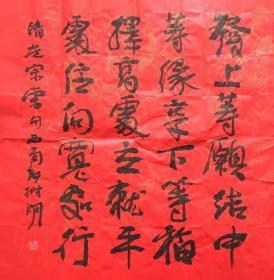 發上等願結中
等緣享下等福
擇高處立就平
處住向寬處行
清左宗棠句